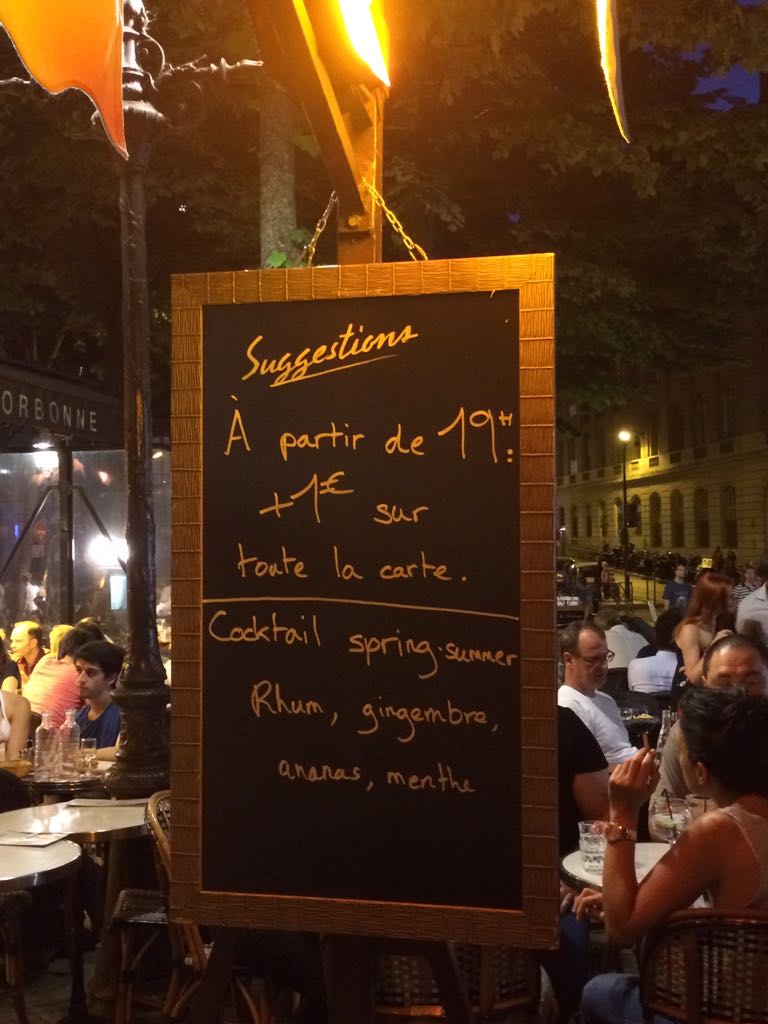 ORBONNE
Suggestions
À partir de 19H:
+1€ sur
toute la carte.
Cocktail spring-summer
Rhum, gingembre,
ananas, menthe